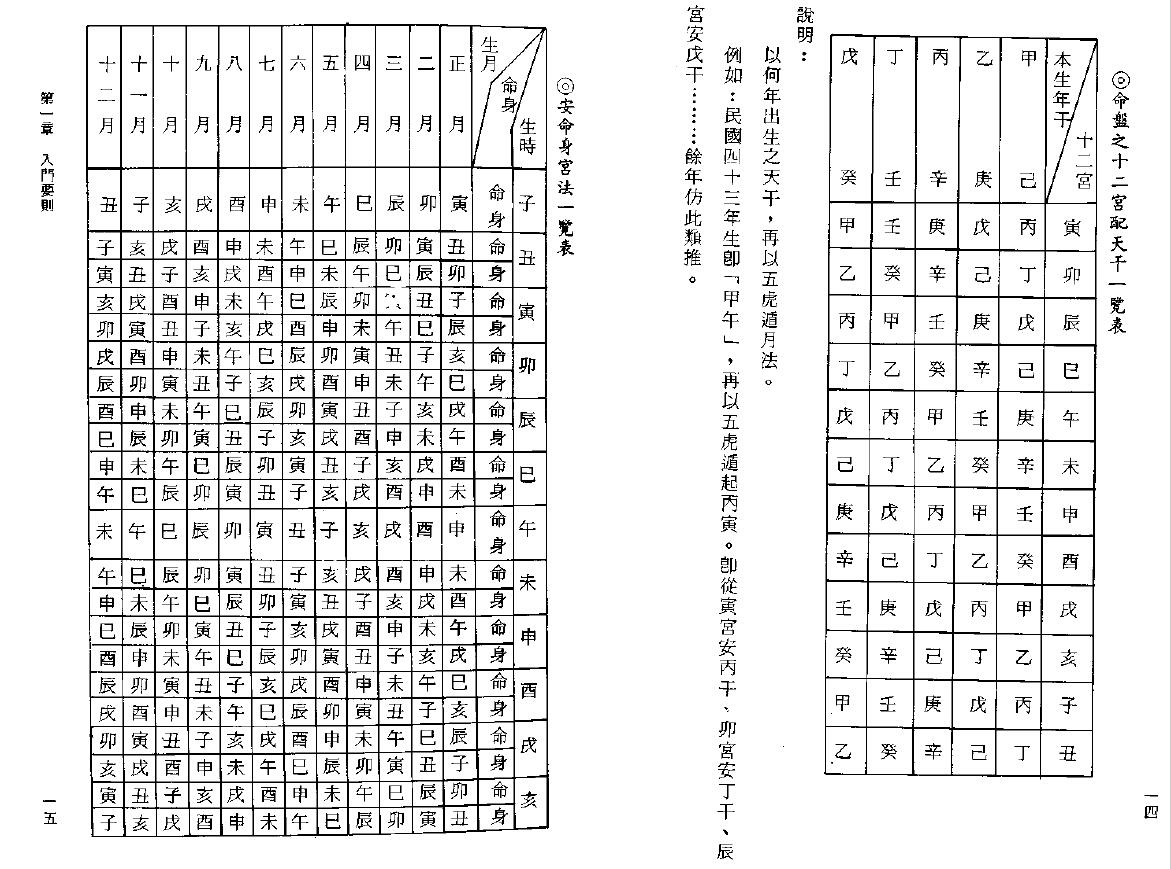 ◎命盤之十二宮配天干一覽表
本生年干 十二宮 寅 卯 辰 巳 午 未 申 酉 戌 亥 子 丑
甲 己 丙 丁 戊 己 庚 辛 壬 癸 甲 乙 丙 丁
乙 庚 戊 己 庚 辛 壬 癸 甲 乙 丙 丁 戊 己
丙 辛 庚 辛 壬 癸 甲 乙 丙 丁 戊 己 庚 辛
丁 壬 壬 癸 甲 乙 丙 丁 戊 己 庚 辛 壬 癸
戊 癸 甲 乙 丙 丁 戊 己 庚 辛 壬 癸 甲 乙
說明：
以何年出生之天干，再以五虎遁月法。
例如：民國四十三年生卽「甲午」，再以五虎遁起丙寅。卽從寅宮安丙干、卯宮安丁干、辰
宮安戊干………餘年仿此類推。
一四
◎安命身宮法一覽表
生時 子 丑 寅 卯 辰 巳 午 未 申 酉 戌 亥
生月 命身 命 身 命 身 命 身 命 身 命 身 命 身 命 身 命 身 命 身 命 身 命 身 命 身
正月 寅 丑 卯 子 辰 亥 巳 戌 午 酉 未 申 未 酉 午 戌 巳 亥 辰 子 卯 丑
二月 卯 寅 辰 丑 巳 子 午 亥 未 戌 申 酉 申 戌 未 亥 午 子 巳 丑 辰 寅
三月 辰 卯 巳 午 丑 未 子 申 亥 酉 戌 酉 亥 申 子 未 丑 午 寅 巳 卯
四月 巳 辰 午 卯 未 寅 申 丑 酉 子 戌 亥 戌 子 酉 丑 申 寅 未 卯 午 辰
五月 午 巳 未 辰 申 卯 酉 寅 戌 丑 亥 子 亥 丑 戌 寅 酉 卯 申 辰 未 巳
六月 未 午 申 巳 酉 辰 戌 卯 亥 寅 子 丑 子 寅 亥 卯 戌 辰 酉 巳 申 午
七月 申 未 酉 午 戌 巳 亥 辰 子 卯 丑 寅 丑 卯 子 辰 亥 巳 戌 午 酉 未
八月 酉 申 戌 未 亥 午 子 巳 丑 辰 寅 卯 寅 辰 丑 巳 子 午 亥 未 戌 申
九月 戌 酉 亥 申 子 未 丑 午 寅 巳 卯 辰 卯 巳 寅 午 丑 未 子 申 亥 酉
十月 亥 戌 子 酉 丑 申 寅 未 卯 午 辰 巳 辰 午 卯 未 寅 申 丑 酉 子 戌
十一月 子 亥 丑 戌 寅 酉 卯 申 辰 未 巳 午 巳 未 辰 申 卯 酉 寅 戌 丑 亥
十二月 丑 子 寅 亥 卯 戌 辰 酉 巳 申 午 未 午 申 巳 酉 辰 戌 卯 亥 寅 子
第一章 入門要則
一五